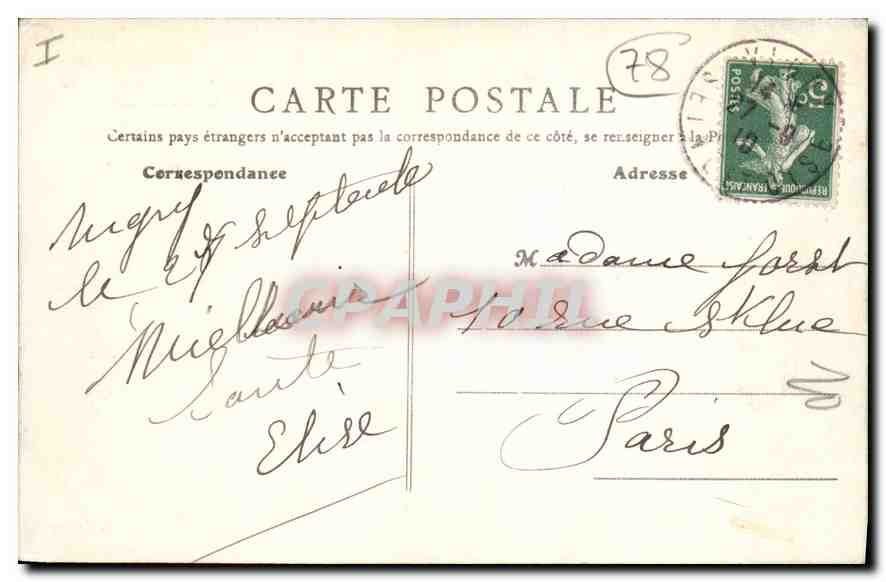 I
78
CARTE POSTALE
Certains pays étrangers n'acceptant pas la correspondance de ce côté, se renseigner à la P
Correspondance
Adresse
POSTES
5c
REPUBLIQUE FRANÇAISE
SEINE
OISE
le 27 Septembre
Santé
Elise
Madame Forst
10 rue
Paris
CPAPHIL